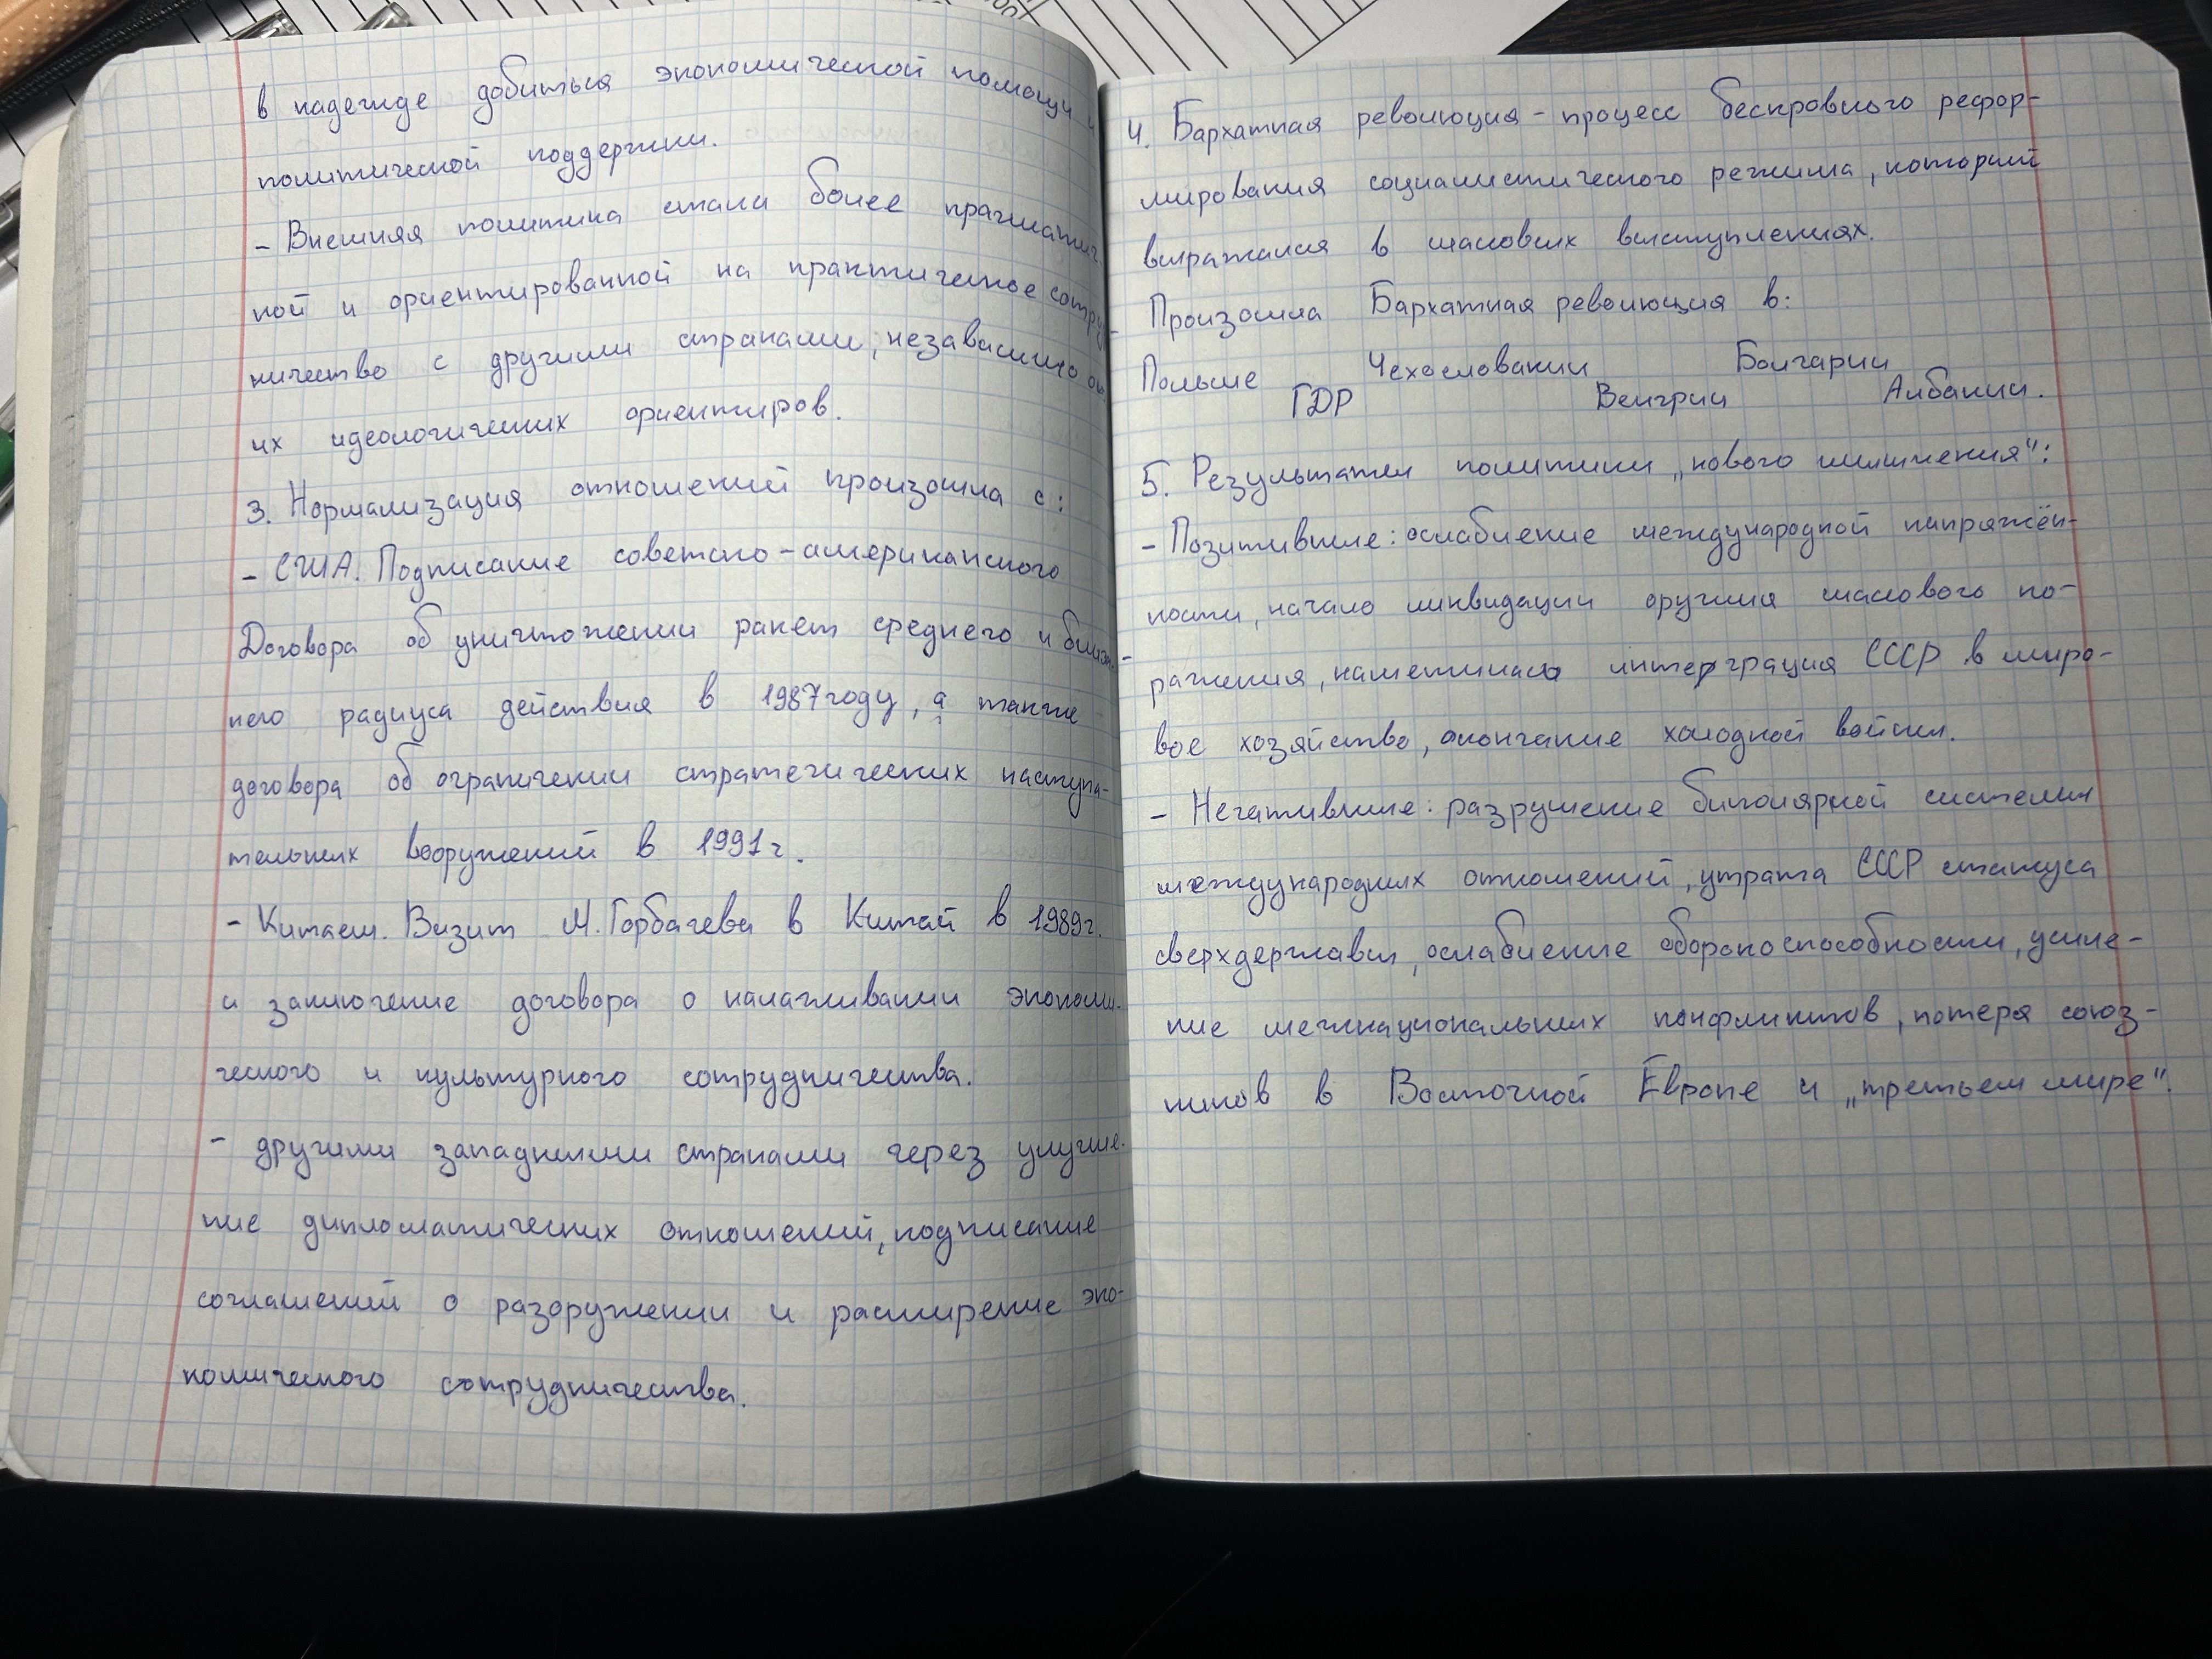 в надежде добиться экономической помощи и
политической поддержки.
- Внешняя политика стала более прагматич-
ной и ориентированной на практическое сотруд-
ничество с другими странами, независимо от
их идеологических ориентиров.
3. Нормализация отношений произошла с:
- США. Подписание советско-американского
Договора об уничтожении ракет среднего и ближ-
него радиуса действия в 1987 году, а также
договора об ограничении стратегических наступа-
тельных вооружений в 1991 г.
- Китаем. Визит М. Горбачева в Китай в 1989г.
и заключение договора о налаживании экономи-
ческого и культурного сотрудничества.
- другими западными странами через улучше-
ние дипломатических отношений, подписание
соглашений о разоружении и расширение эко-
номического сотрудничества.
4. Бархатная революция - процесс бескровного рефор-
мирования социалистического режима, который
выражался в массовых выступлениях.
- Произошла Бархатная революция в:
Польше Чехословакии Болгарии
ГДР Венгрии Албании.
5. Результаты политики „нового мышления“:
- Позитивные: ослабление международной напряжён-
ности, начало ликвидации оружия массового по-
ражения, наметилась интерграция СССР в миро-
вое хозяйство, окончание холодной войны.
- Негативные: разрушение биполярной системы
международных отношений, утрата СССР статуса
сверхдержавы, ослабление обороноспособности, усиле-
ние межнациональных конфликтов, потеря союз-
ников в Восточной Европе и „третьем мире“.